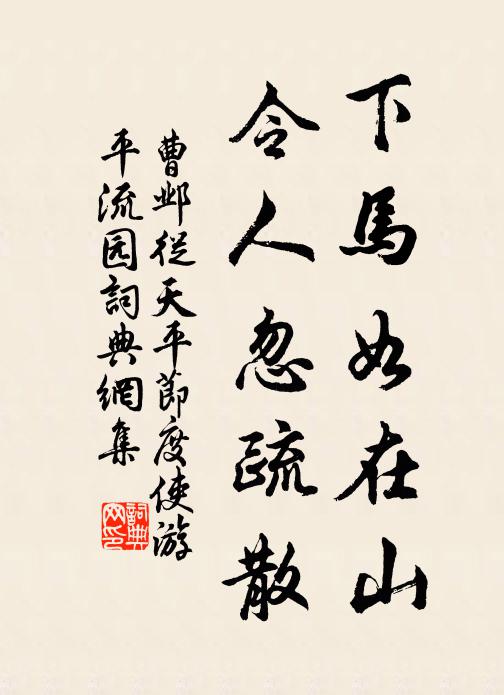 下馬如在山
令人忽疏散
曹邺從天平節度使游
平流园詞典網集
詞典
网印